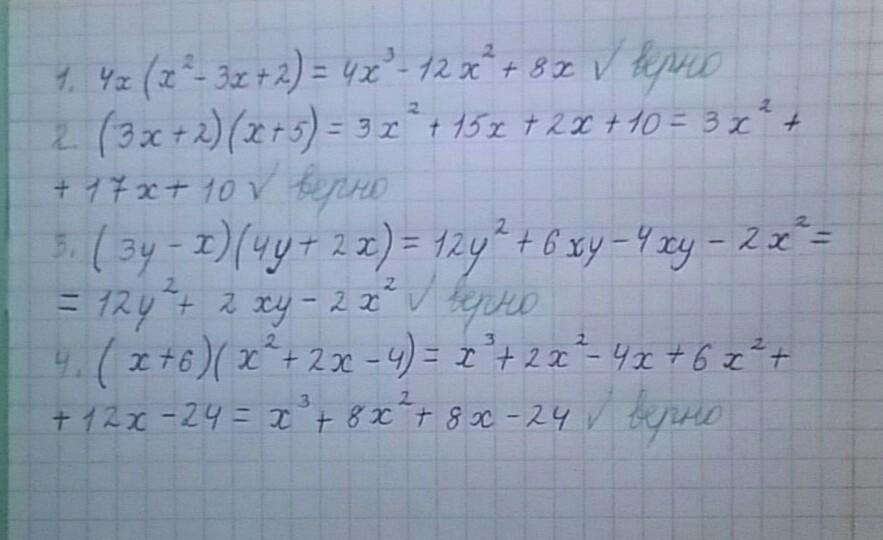 1. 4x(x² - 3x + 2) = 4x³ - 12x² + 8x √ верно
2. (3x + 2)(x + 5) = 3x² + 15x + 2x + 10 = 3x² +
+ 17x + 10 √ верно
3. (3y - x)(4y + 2x) = 12y² + 6xy - 4xy - 2x² =
= 12y² + 2xy - 2x² √ верно
4. (x + 6)(x² + 2x - 4) = x³ + 2x² - 4x + 6x² +
+ 12x - 24 = x³ + 8x² + 8x - 24 √ верно